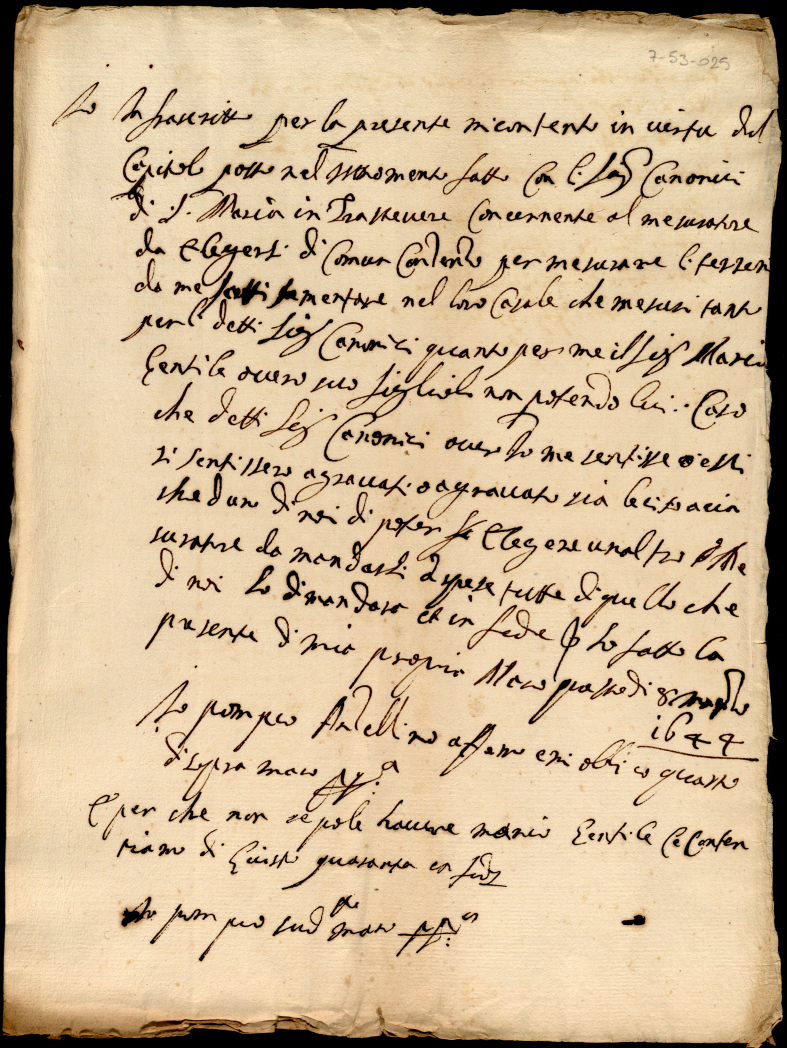 7-53-025
Io Infrascritto per la presente mi contento in virtu del
Capitolo posto nel Istromento fatto con li Sig.ri Canonici
di S. Maria in Trastevere concernente al mesuratore
da elegersi di comun contento per mesurare li terreni
da me nel loro Casale che mesuri tanto
per li detti Sig.ri Canonici quanto per me il Sig.r Mario
Gentile overo suo figliolo non potendo lui. Caso
che detti Sig.ri Canonici over Io me sentisse o essi
si sentissero agravati o aggravato sia lecito a cia
sheduno di noi di poter elegere un altro Me
suratore da mandarsi a spese tutte di quello che
di noi lo dimandara et in fede ho fatto la
presente di mia propria Mano questo di 8 
1644
Io pompeo affermo e mi obligo quanto
di sopra mano pp.a
E per che non se pole havere mario Gentile ce conten
tiamo di quaranta in fede
Io pompeo sud.to mano pp.a